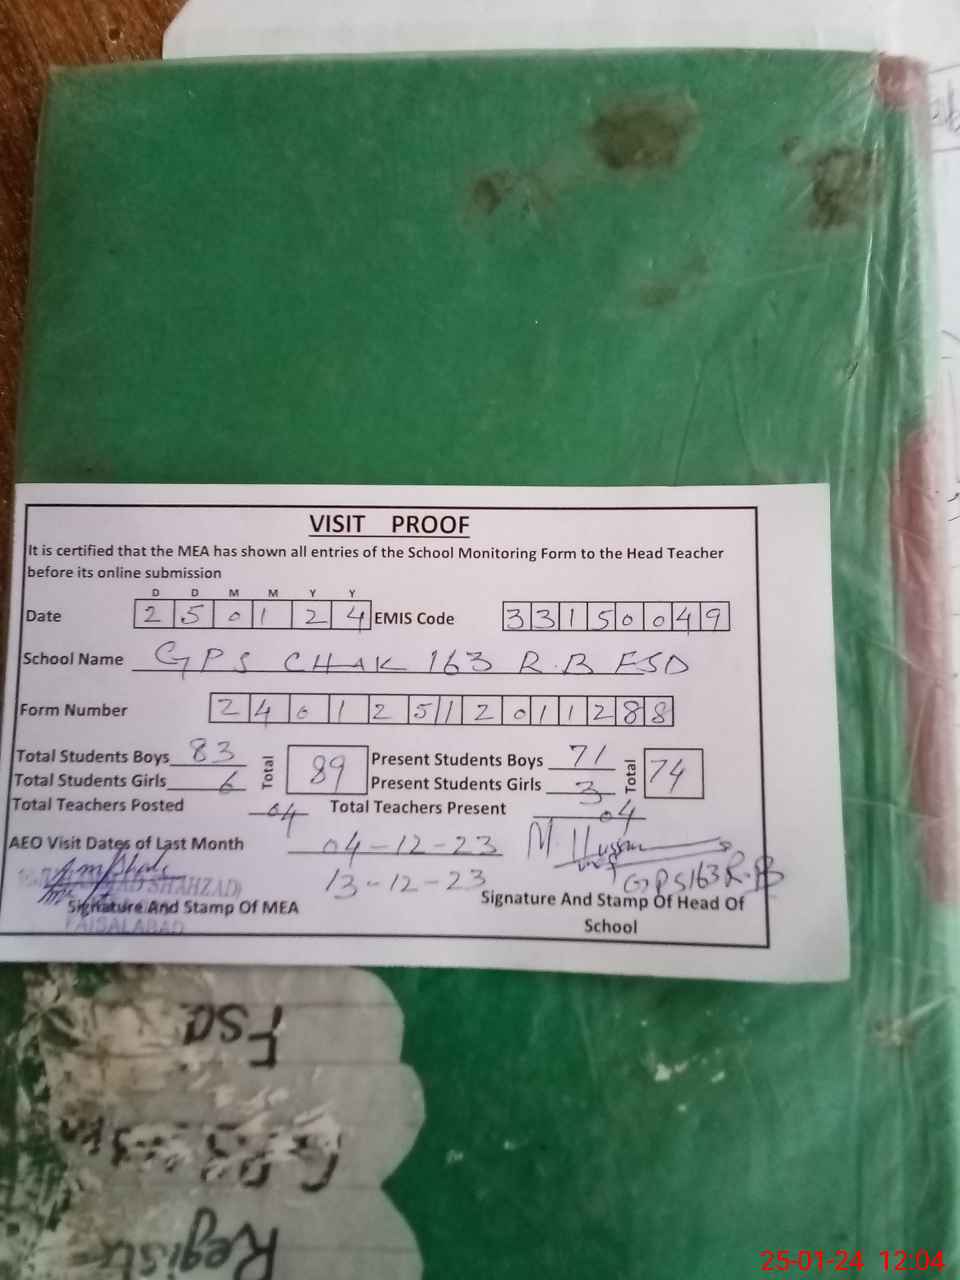 VISIT PROOF
It is certified that the MEA has shown all entries of the School Monitoring Form to the Head Teacher
before its online submission
D D M M Y Y
Date 2 5 0 1 2 4 EMIS Code 3 3 1 5 0 0 4 9
School Name GPS CHAK 163 R.B FSD
Form Number 2 4 0 1 2 5 1 2 0 1 1 2 8 8
Total Students Boys 83 Total 89 Present Students Boys 71 Total 74
Total Students Girls 6 Present Students Girls 3
Total Teachers Posted 04 Total Teachers Present 04
AEO Visit Dates of Last Month 04-12-23 M. Hussain
13-12-23 GPS 163 R.B
SHAHZAD)
Signature And Stamp Of MEA Signature And Stamp Of Head Of
School
FAISALABAD
Fsd
Regist
25-01-24 12:04